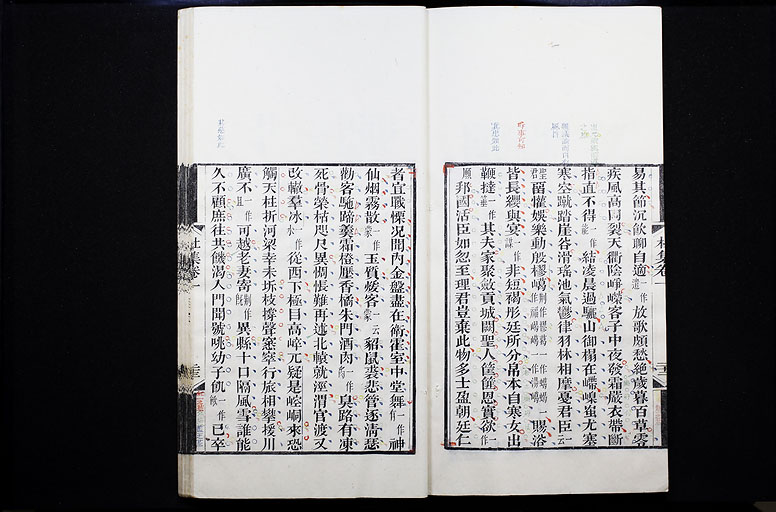 易其節沉飲聊自適一作遣放歌頗愁絕歲暮百草零
疾風高岡裂天衢陰崢嶸客子中夜發霜嚴衣帶斷
指直不得一作能結凌晨過驪山御榻在嵽嵲蚩尤塞
寒空蹴踏崖谷滑瑤池氣鬱律羽林相摩戛君臣云一作
聖君留懽娛樂動殷樛嶱賜浴
皆長纓與宴一作謀非短褐彤廷所分帛本自寒女出
鞭撻一作其夫家聚斂貢城闕聖人筐篚恩實欲一作
願邦國活臣如忽至理君豈棄此物多士盈朝廷仁
者宜戰慄况聞內金盤盡在衛霍室中堂舞一作有神
仙烟霧散一作蒙玉質煖客一云蒙貂鼠裘悲管逐清瑟
勸客駝蹄羹霜橙壓香橘朱門酒肉臭路有凍
死骨榮枯咫尺異惆悵難再述北轅就涇渭官渡又
改轍羣冰一作水從西下極目高崒兀疑是崆峒來恐
觸天柱折河梁幸未坼枝撐聲窸窣行旅相攀援川
廣不一作且可越老妻寄一作既異縣十口隔風雪誰能
久不顧庶往共饑渴入門聞號咷幼子飢一作餓已卒